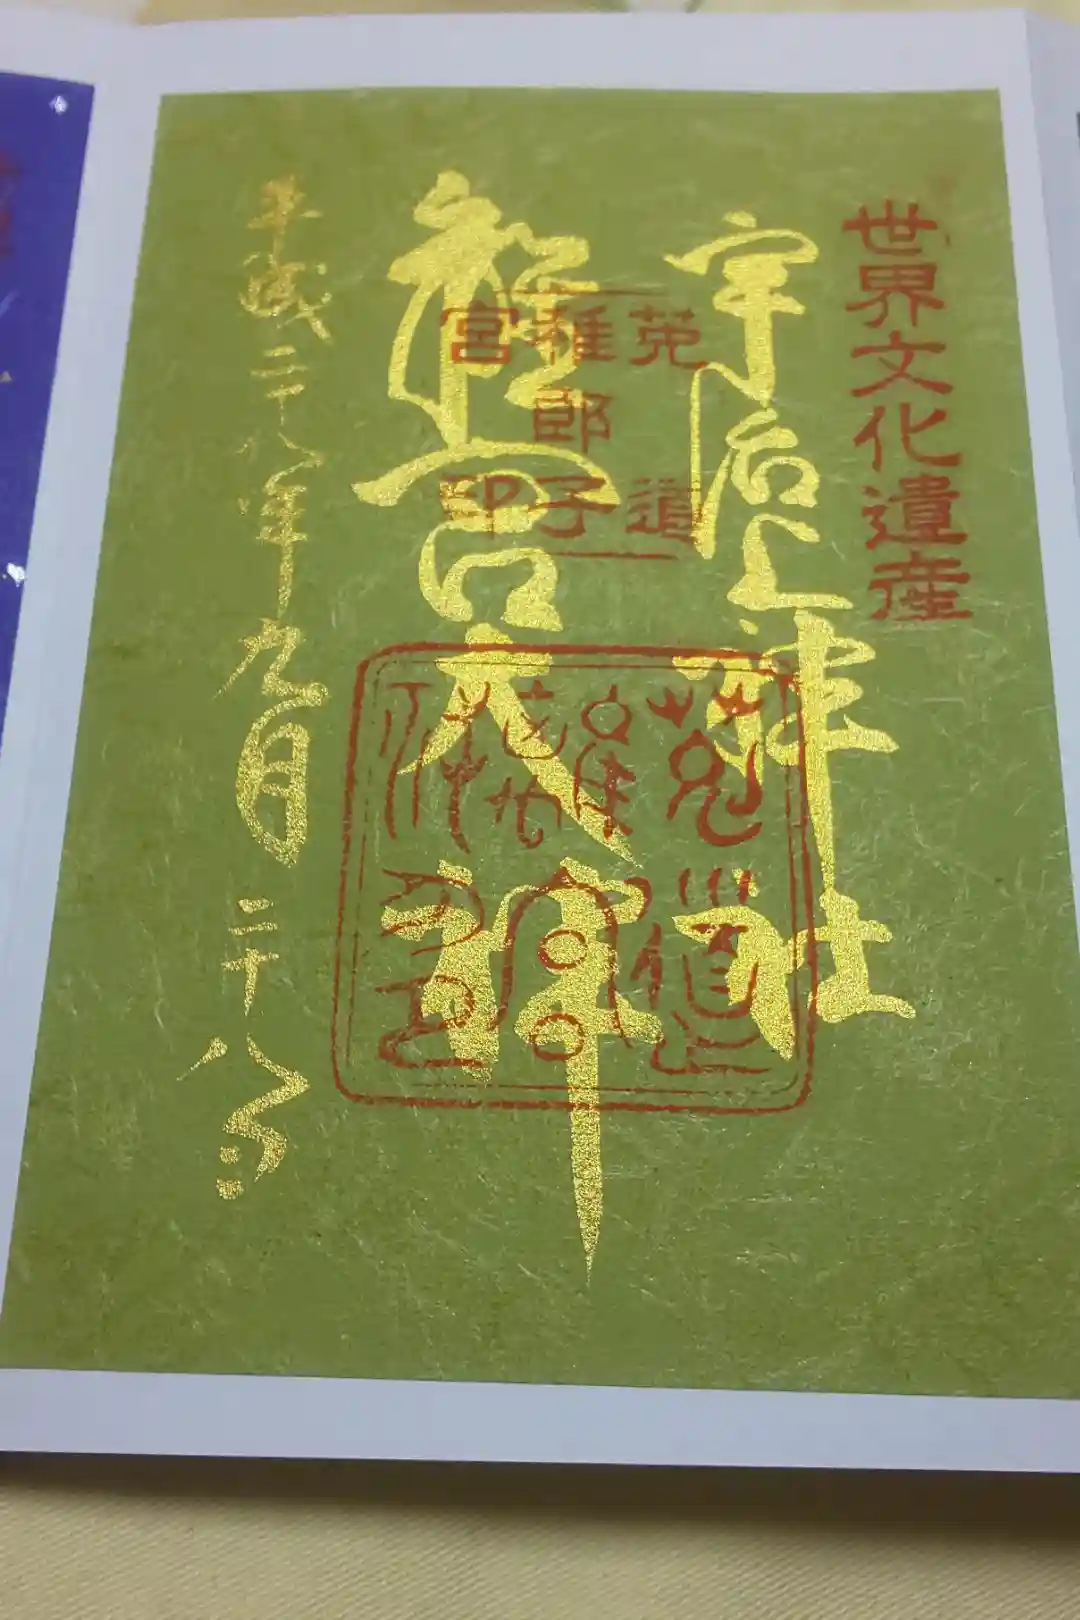 世界文化遺産
宇治上神社
離宮大神
平成二十八年九月二十八日
菟道
稚郎子
宮印